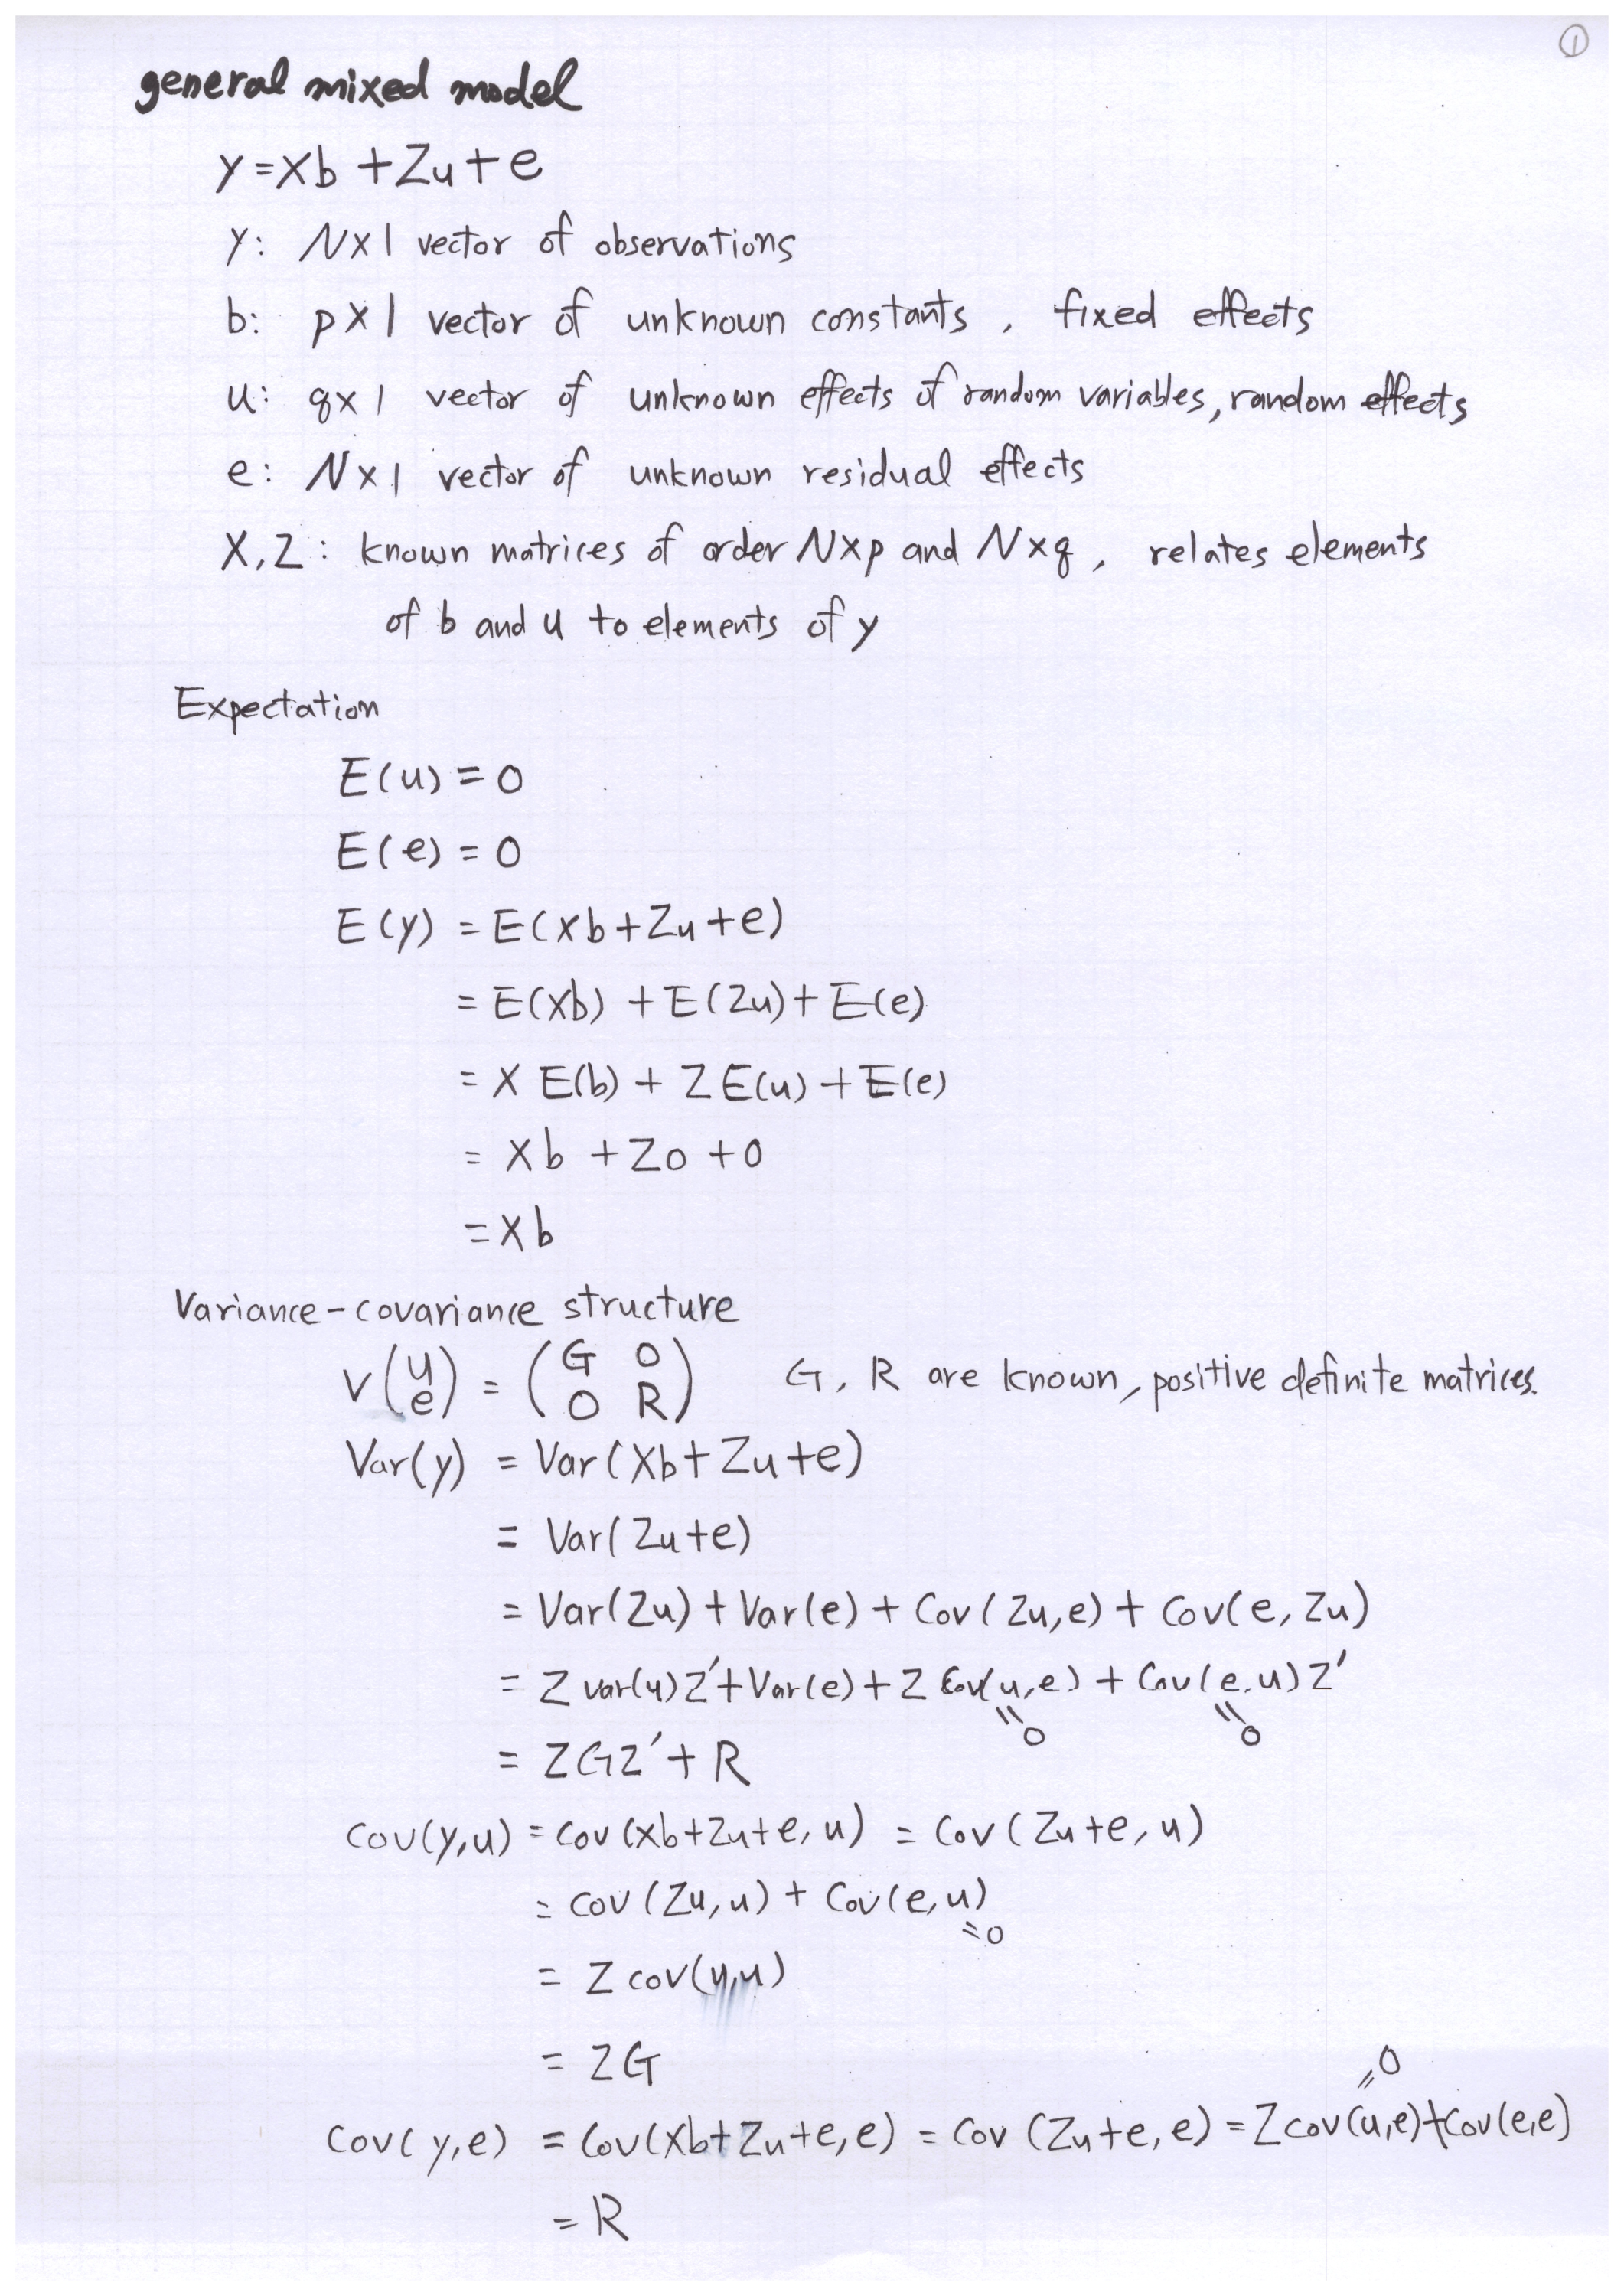 ①
general mixed model
y = Xb + Zu + e
y: N×1 vector of observations
b: p×1 vector of unknown constants, fixed effects
u: q×1 vector of unknown effects of random variables, random effects
e: N×1 vector of unknown residual effects
X, Z: known matrices of order N×p and N×q, relates elements
of b and u to elements of y
Expectation
E(u) = 0
E(e) = 0
E(y) = E(Xb + Zu + e)
= E(Xb) + E(Zu) + E(e)
= X E(b) + Z E(u) + E(e)
= Xb + Z0 + 0
= Xb
Variance-covariance structure
V(u e) = (G 0 0 R) G, R are known, positive definite matrices.
Var(y) = Var(Xb + Zu + e)
= Var(Zu + e)
= Var(Zu) + Var(e) + Cov(Zu, e) + Cov(e, Zu)
= Z var(u) Z' + Var(e) + Z Cov(u, e) + Cov(e, u) Z'
= 0 = 0
= ZGZ' + R
Cov(y, u) = Cov(Xb + Zu + e, u) = Cov(Zu + e, u)
= Cov(Zu, u) + Cov(e, u)
= 0
= Z cov(u, u)
= ZG
= 0
Cov(y, e) = Cov(Xb + Zu + e, e) = Cov(Zu + e, e) = Z cov(u, e) + Cov(e, e)
= R